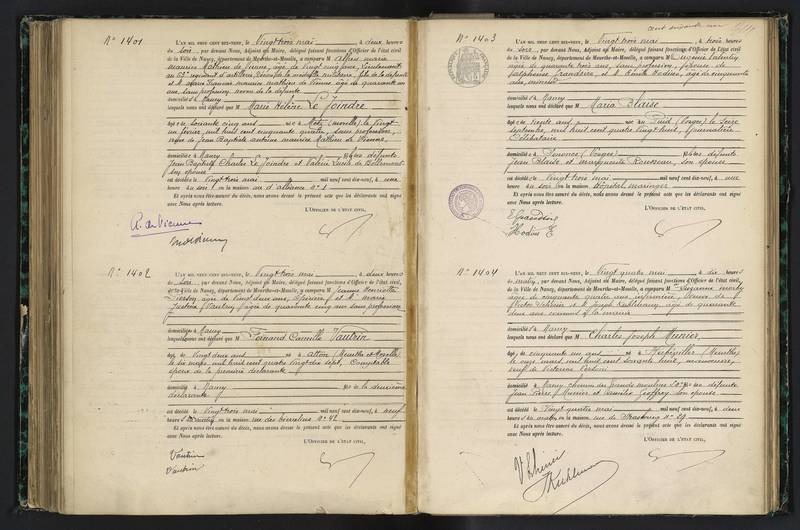 N° 1401
L'AN MIL NEUF CENT DIX-NEUF, le Vingt trois mai à deux heures
du soir, par devant Nous, Adjoint au Maire, délégué faisant fonctions d'Officier de l'état civil
de la Ville de Nancy, département de Meurthe-et-Moselle, a comparu M Alfred marie
domicilié à Nancy
lesquels nous ont déclaré que M Marie Hélène Le Joindre
âgée de soixante cinq ans née à Metz (moselle) le vingt
un février mil huit cent cinquante quatre, sans profession,
veuve de Jean Baptiste antoine maurice Mathieu de Vienne
domiciliée à Nancy fille des défunts
Jean Baptiste Charles Le Joindre et
son épouse
est décédée le vingt trois mai mil neuf cent dix-neuf, à une
heure du soir en la maison rue d'alliance n° 1
Et après nous être assuré du décès, nous avons dressé le présent acte que les déclarants ont signé
avec Nous après lecture.
L'OFFICIER DE L'ÉTAT CIVIL,
N° 1402
L'AN MIL NEUF CENT DIX-NEUF, le Vingt trois mai à deux heures
du soir, par devant Nous, Adjoint au Maire, délégué faisant fonctions d'Officier de l'état civil
de la Ville de Nancy, département de Meurthe-et-Moselle, a comparu M Jeanne Henriette
âgée de vingt deux ans, épicière et M marie
Justine Vautrin, âgée de quarante cinq ans sans profession
domiciliées à Nancy
lesquelles nous ont déclaré que M Fernand Camille Vautrin
âgé de vingt deux ans né à atton (Meurthe et Moselle)
le six mars mil huit cent quatre vingt dix sept, Comptable
époux de la première déclarante
domicilié à Nancy fils de la deuxième
déclarante
est décédé le vingt trois mai mil neuf cent dix-neuf, à neuf
heures du matin en la maison rue des n° 42
Et après nous être assuré du décès, nous avons dressé le présent acte que les déclarants ont signé
avec Nous après lecture.
L'OFFICIER DE L'ÉTAT CIVIL,
Vautrin
Vautrin
N° 1403
L'AN MIL NEUF CENT DIX-NEUF, le Vingt trois mai à trois heures
du soir, par devant Nous, Adjoint au Maire, délégué faisant fonctions d'Officier de l'état civil
de la Ville de Nancy, département de Meurthe-et-Moselle, a comparu M Eugénie
âgée de quarante trois ans, sans profession, épouse de
et M Emile Hodin, âgé de cinquante
domiciliés à Nancy
lesquels nous ont déclaré que M Maria Blaise
âgée de trente ans née à (Vosges) le seize
septembre mil huit cent quatre vingt huit, journalière
Célibataire
domiciliée à Senones (Vosges) fille des défunts
Jean Blaise et marguerite Rousseau, son épouse
est décédée le Vingt trois mai mil neuf cent dix-neuf, à une
heure du soir en la maison hôpital maringer
Et après nous être assuré du décès, nous avons dressé le présent acte que les déclarants ont signé
avec Nous après lecture.
L'OFFICIER DE L'ÉTAT CIVIL,
N° 1404
L'AN MIL NEUF CENT DIX-NEUF, le Vingt quatre mai à dix heures
du matin, par devant Nous, Adjoint au Maire, délégué faisant fonctions d'Officier de l'état civil
de la Ville de Nancy, département de Meurthe-et-Moselle, a comparu M Suzanne
âgée de cinquante quatre ans infirmière, Veuve de
et M Joseph Kuhlmann, âgé de quarante
deux ans commis à la mairie
domiciliés à Nancy
lesquels nous ont déclaré que M Charles Joseph Munier
âgé de cinquante un ans né à (Meurthe)
le onze mars mil huit cent soixante huit, manoeuvre,
veuf de Victorine
domicilié à Nancy chemin des grands moulins fils des défunts
Jean Pierre Munier et Geoffroy son épouse
est décédé le Vingt quatre mai mil neuf cent dix-neuf, à deux
heures du matin en la maison rue de Strasbourg n° 29
Et après nous être assuré du décès, nous avons dressé le présent acte que les déclarants ont signé
avec Nous après lecture.
L'OFFICIER DE L'ÉTAT CIVIL,